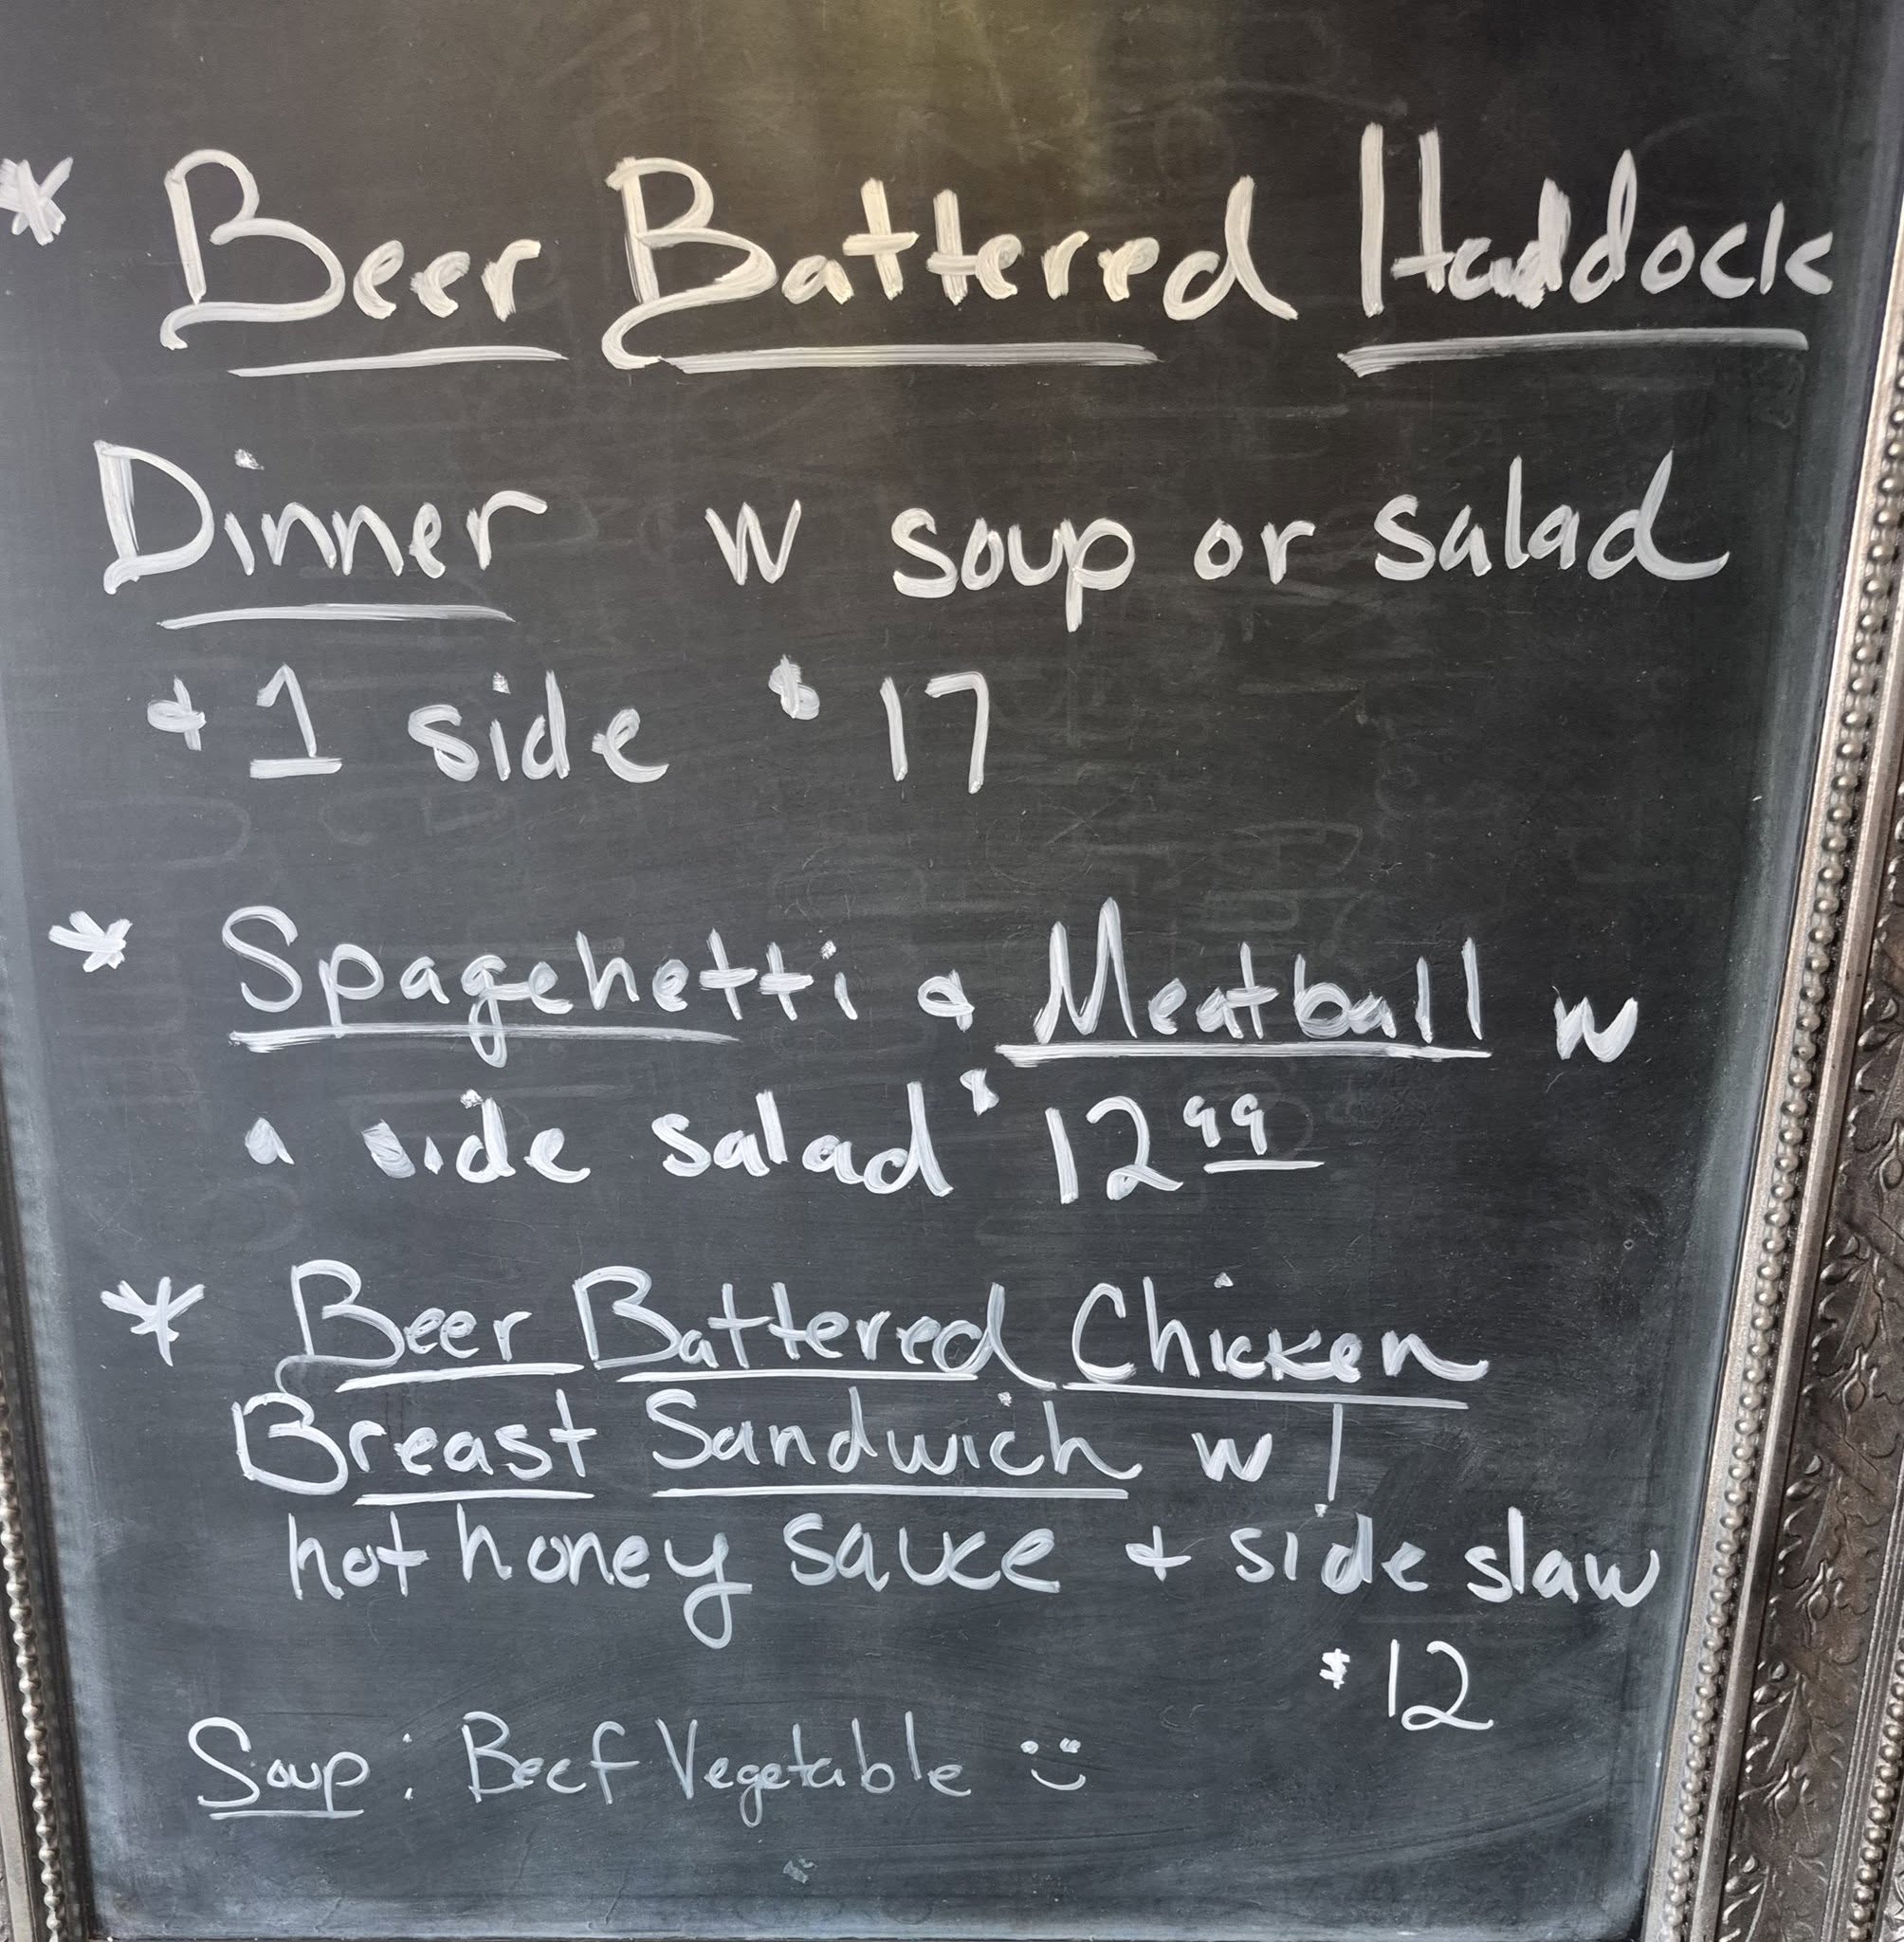 * Beer Battered Haddock
Dinner w soup or salad
+ 1 side $17
* Spagehetti & Meatball w
a side salad $12 99
* Beer Battered Chicken
Breast Sandwich w/
hot honey sauce + side slaw
$12
Soup: Beef Vegetable :)